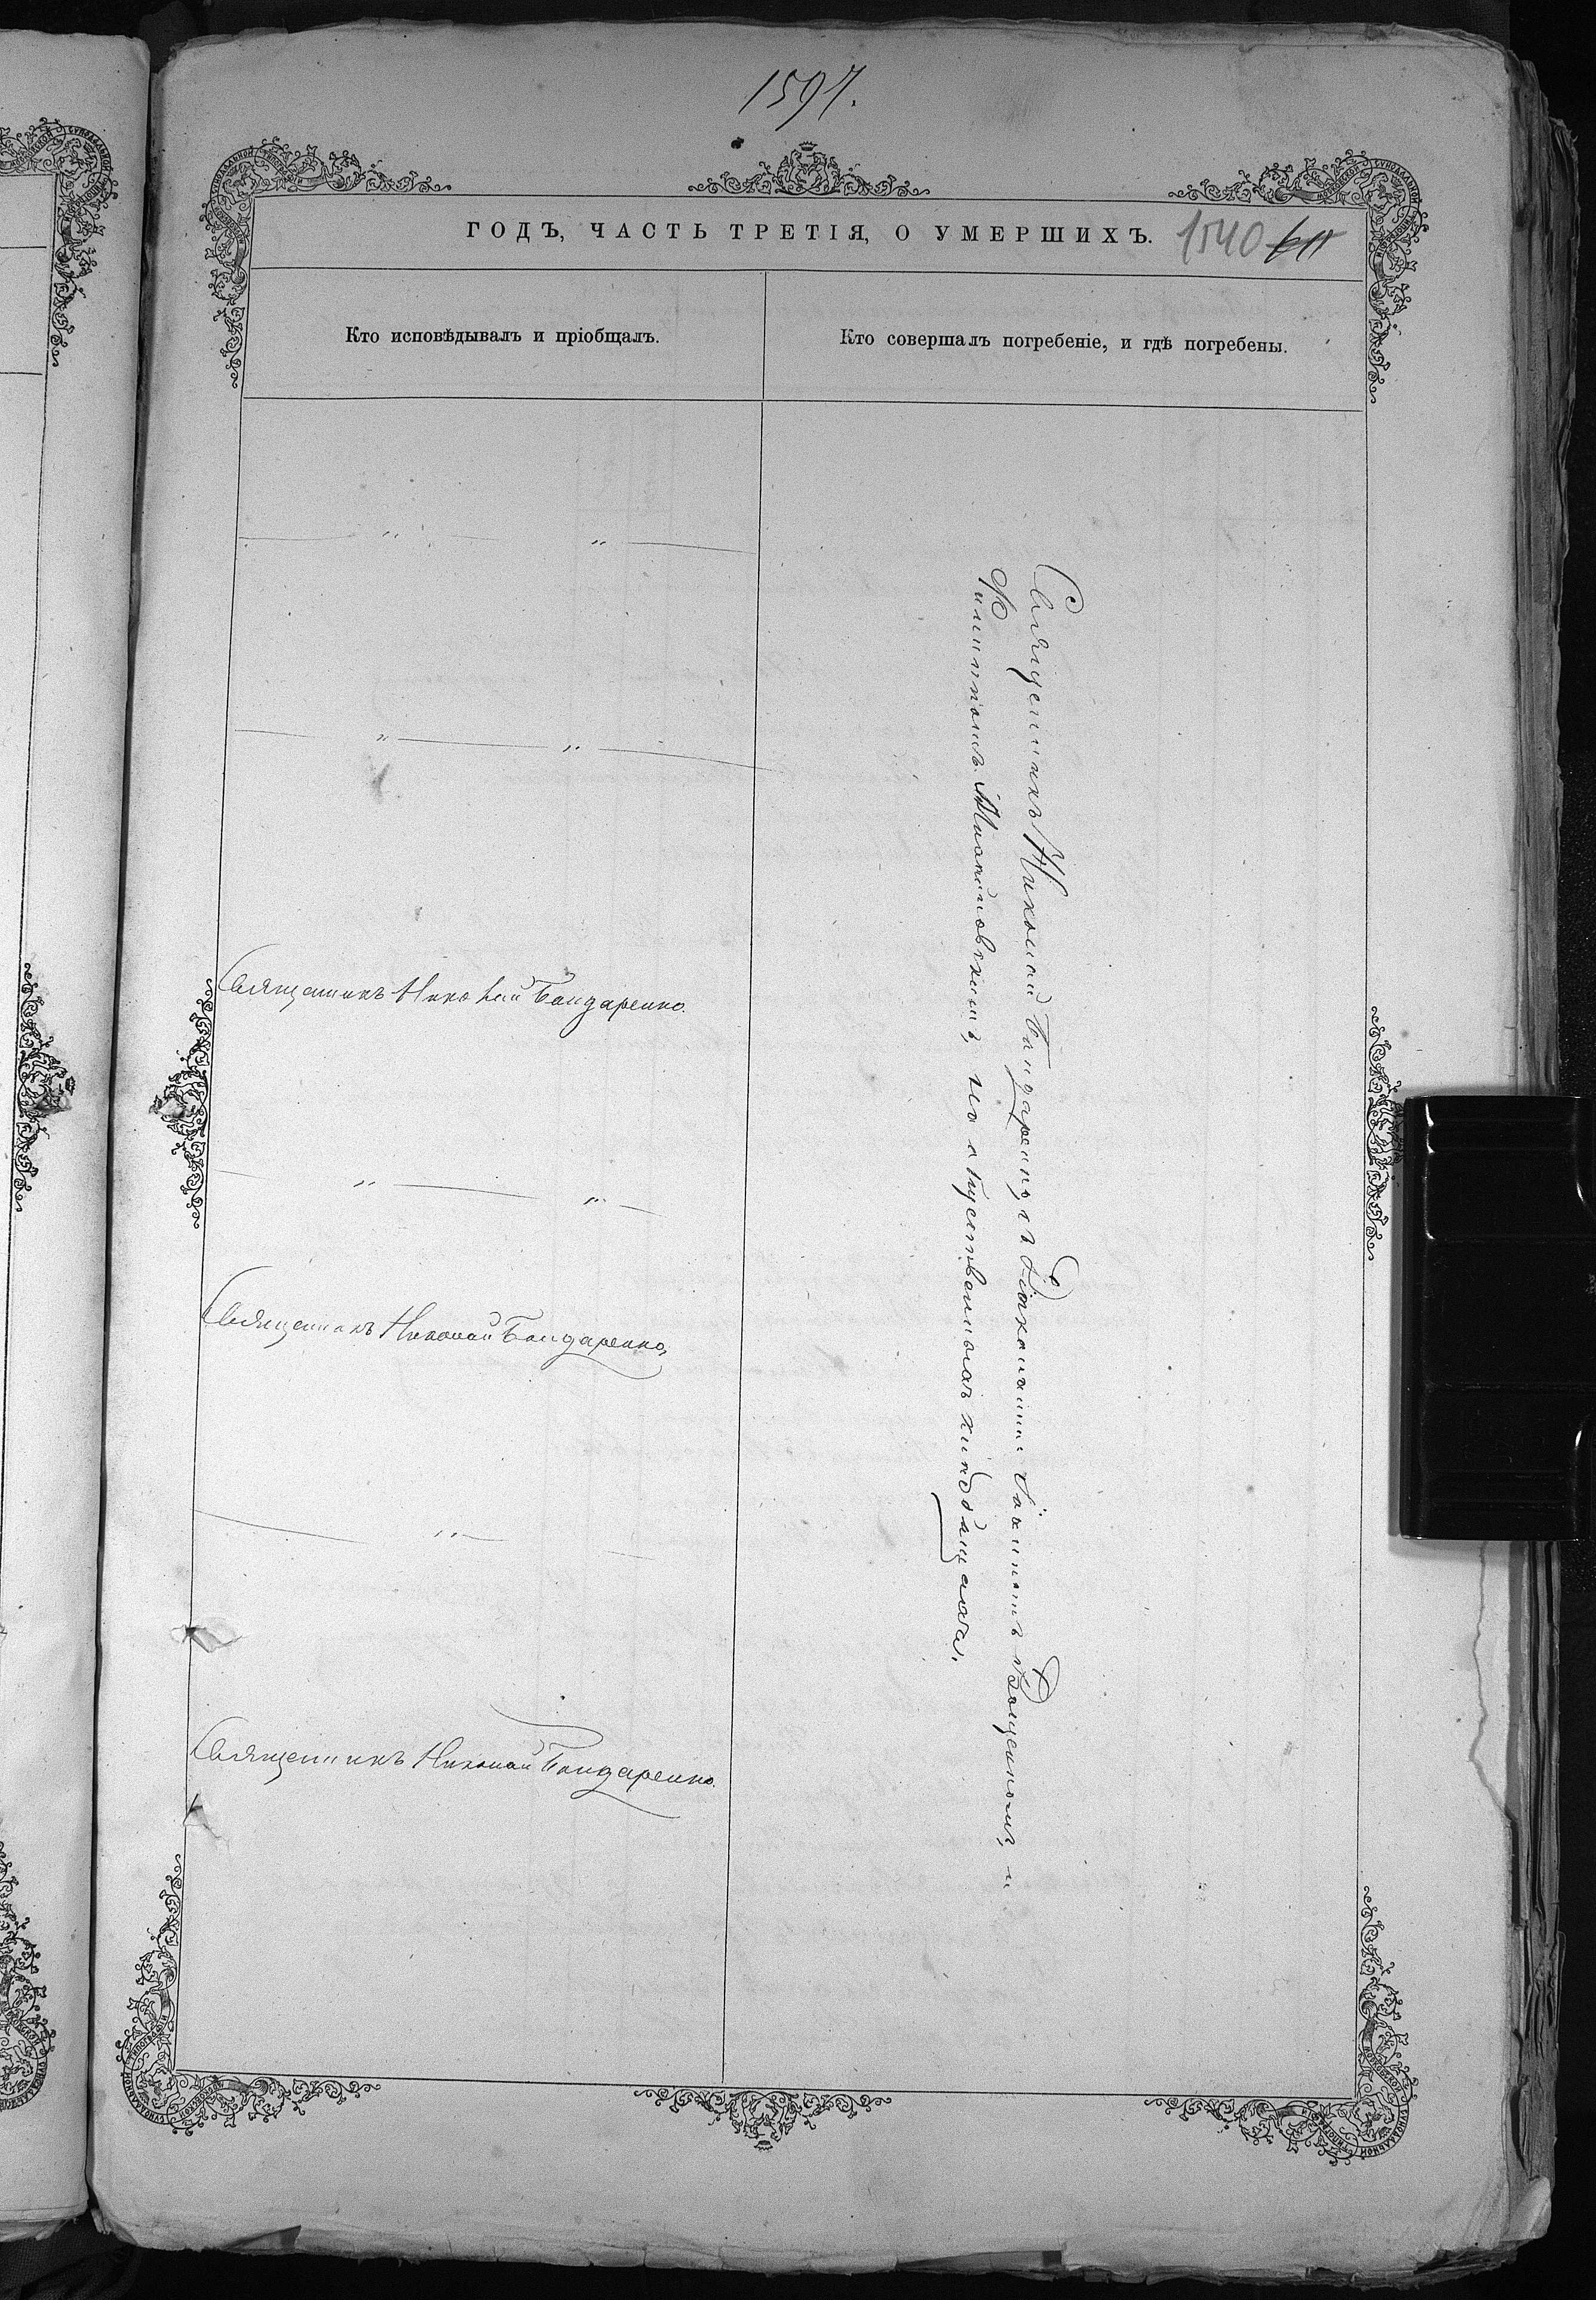 1597.
ГОДЪ, ЧАСТЬ ТРЕТІЯ, О УМЕРШИХЪ.
1540
Кто исповѣдывалъ и пріобщалъ.
Кто совершалъ погребеніе, и гдѣ погребены.
Священникъ Николай Бондаренко.
Священникъ Николай Бондаренко,
Священникъ Николай Бондаренко.
Священникъ Николай Бондаренко съ Діаконами и
Филиппомъ на общественномъ кладбищѣ.